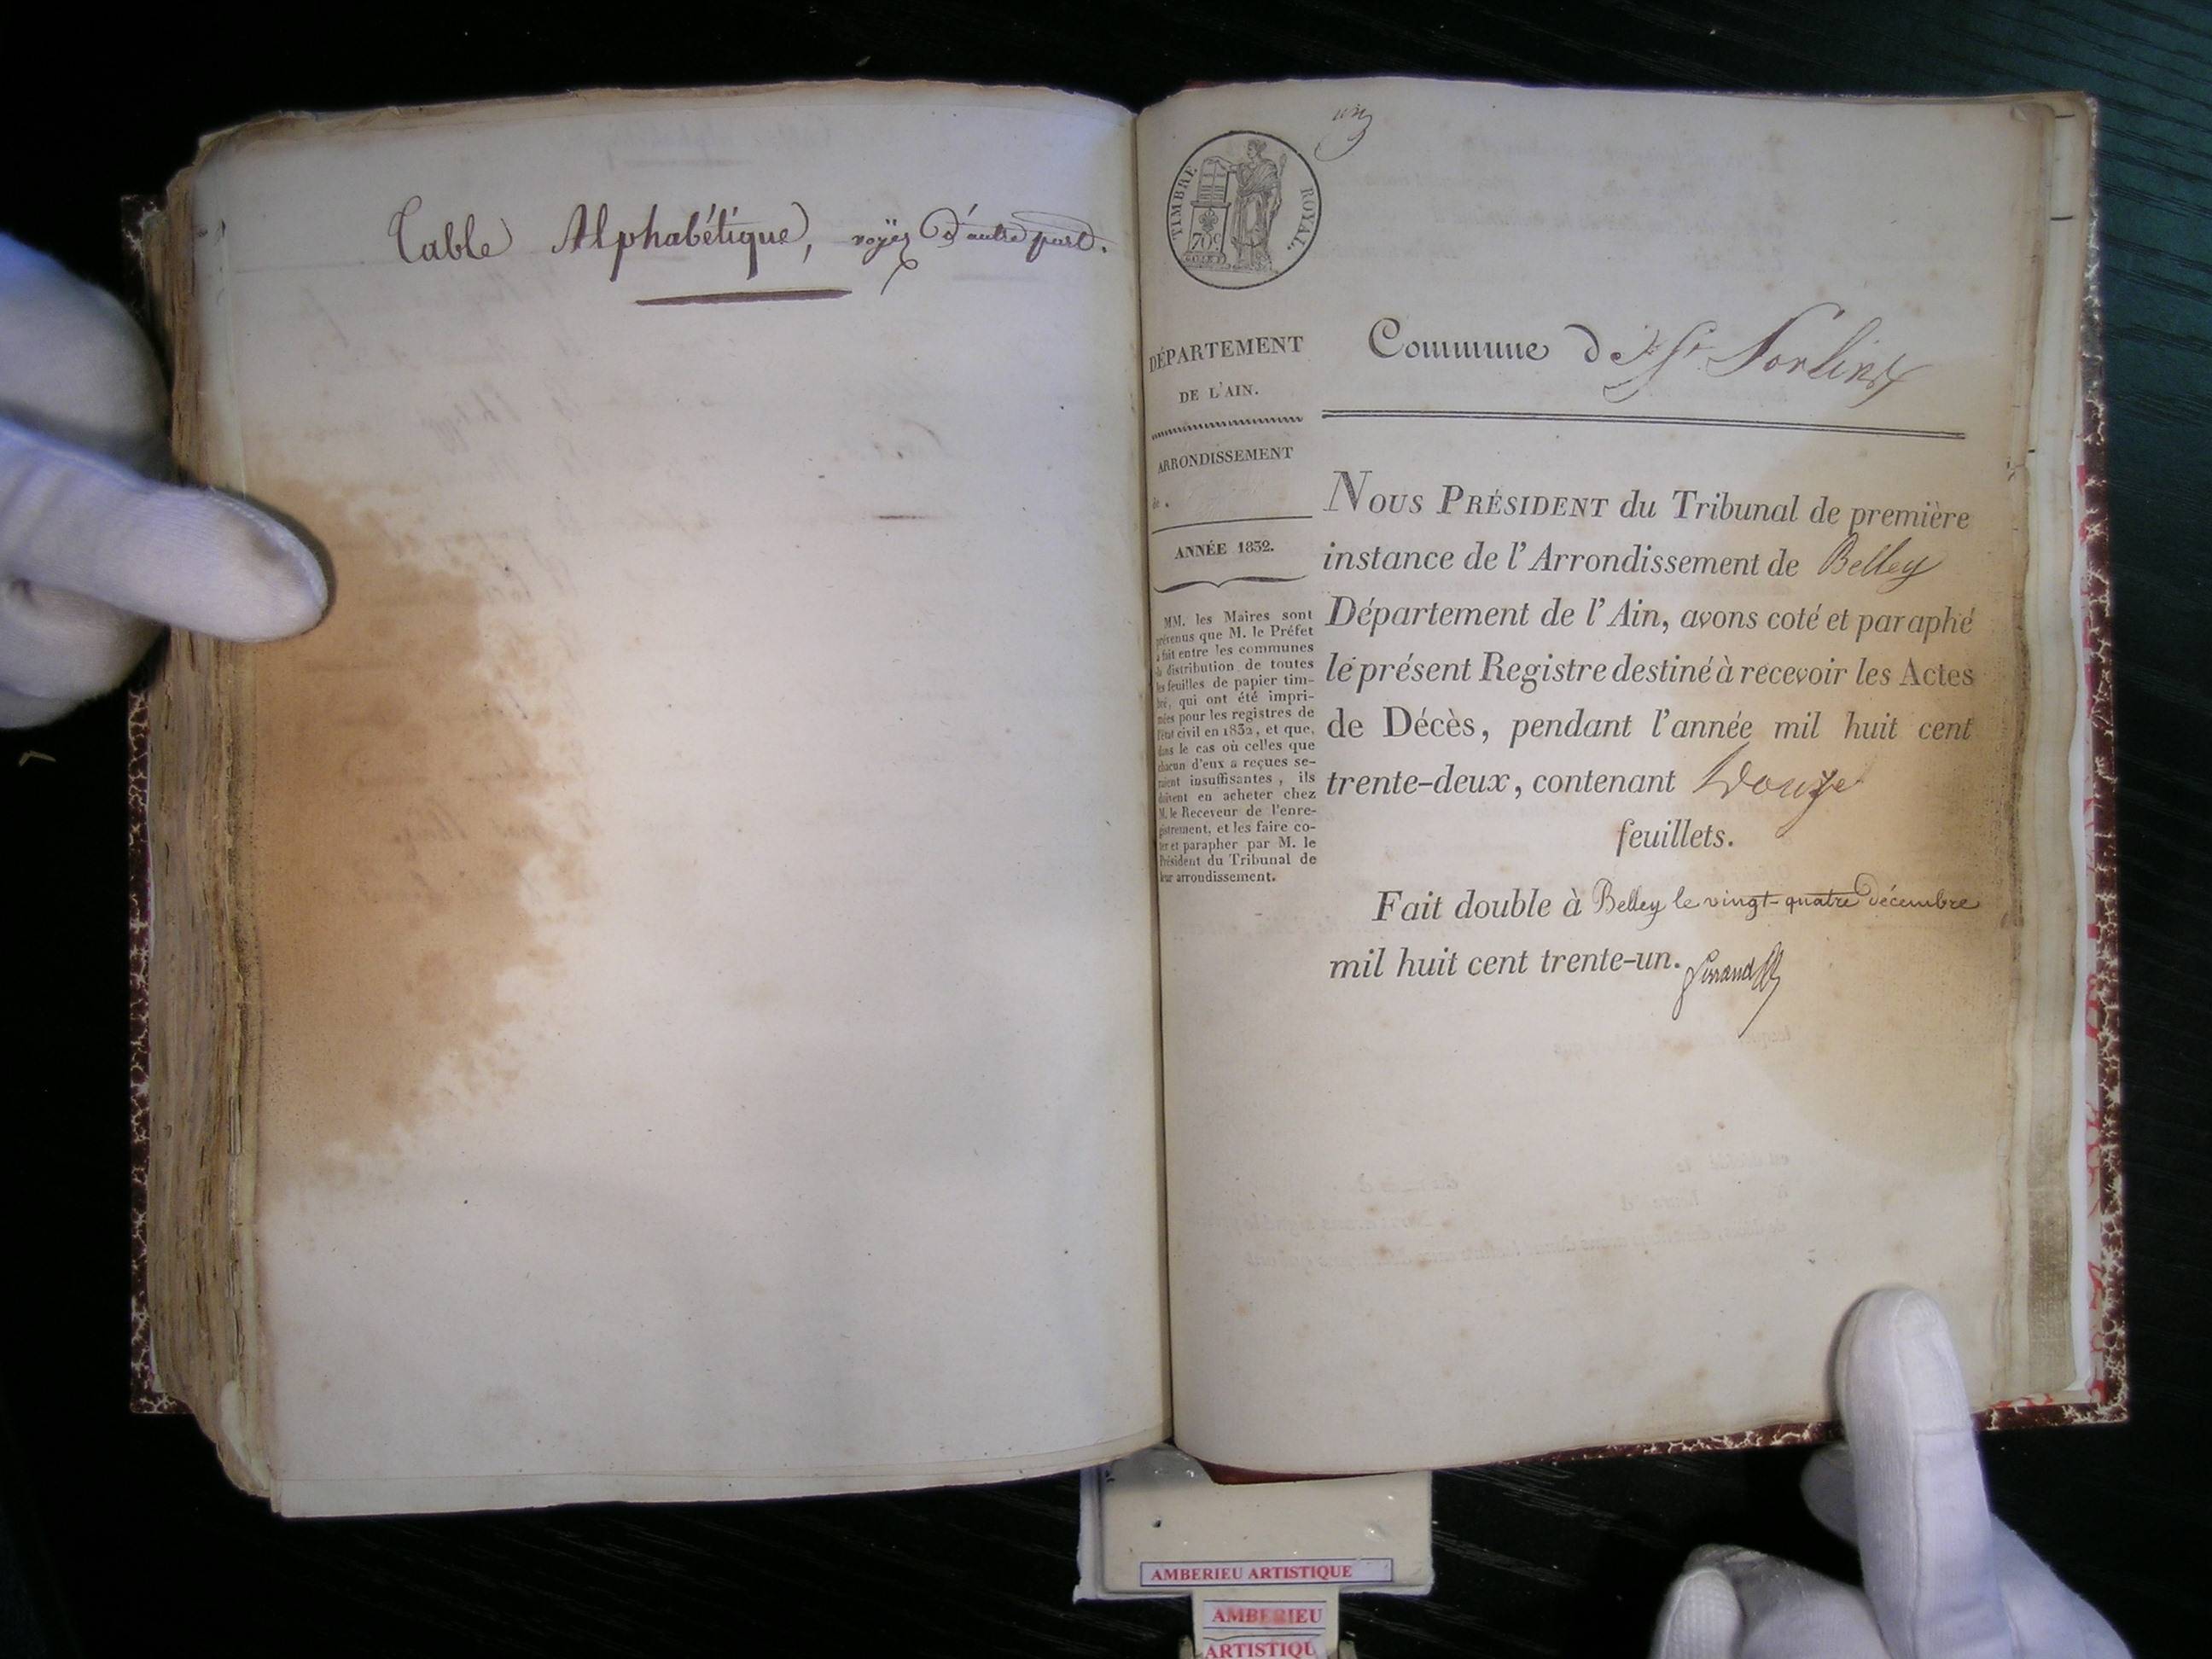 Table Alphabétique, voyez d'autre part.
un
TIMBRE ROYAL.
70c
DÉPARTEMENT
DE L'AIN.
ARRONDISSEMENT
de
ANNÉE 1832.
MM. les Maires sont
prévenus que M. le Préfet
a fait entre les communes
la distribution de toutes
les feuilles de papier tim-
bré, qui ont été impri-
mées pour les registres de
l'état civil en 1832, et que,
dans le cas où celles que
chacun d'eux a reçues se-
raient insuffisantes, ils
doivent en acheter chez
M. le Receveur de l'enre-
gistrement, et les faire co-
ter et parapher par M. le
Président du Tribunal de
leur arrondissement.
Commune de St Sorlin
NOUS PRÉSIDENT du Tribunal de première
instance de l'Arrondissement de Belley
Département de l'Ain, avons coté et paraphé
le présent Registre destiné à recevoir les Actes
de Décès, pendant l'année mil huit cent
trente-deux, contenant Douze
feuillets.
Fait double à Belley le vingt-quatre décembre
mil huit cent trente-un.
AMBERIEU ARTISTIQUE
AMBERIEU
ARTISTIQU